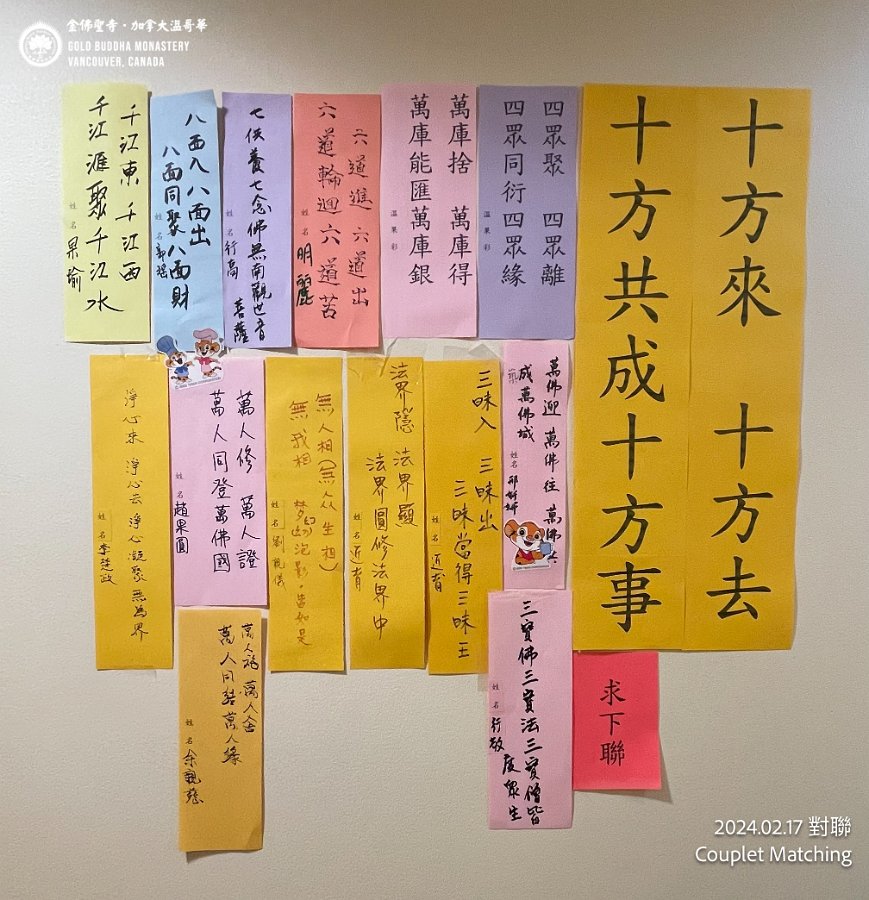 金佛聖寺·加拿大溫哥華
GOLD BUDDHA MONASTERY
VANCOUVER, CANADA
十方來 十方去
十方共成十方事
求下聯
四眾聚 四眾離
四眾同衍四眾緣
溫果彩
萬庫捨 萬庫得
萬庫能匯萬庫銀
溫果彩
六道進 六道出
六道輪迴六道苦
姓名 明麗
七供養七念佛無南觀世音
菩薩
姓名 行高
八面入八面出
八面同聚八面財
姓名 郭瑶
千江東 千江西
千江匯聚千江水
姓名 果瑜
萬佛迎 萬佛往 萬佛
成萬佛城
姓名
三昧入 三昧出
三昧當得三昧王
姓名 近育
法界隱 法界顯
法界圓修法界中
姓名 近育
無人相(無人众生相)
無我相 梦幻泡影,皆如是
姓名 劉親儀
萬人修 萬人證
萬人同登萬佛國
姓名 趙果圓
淨心來 淨心去 淨心凝聚無為界
姓名 李楚政
三寶佛三寶法三寶僧皆
度眾生
姓名 行敬
萬人福 萬人舍
萬人同結萬人緣
姓名 余親慈
2024.02.17 對聯
Couplet Matching